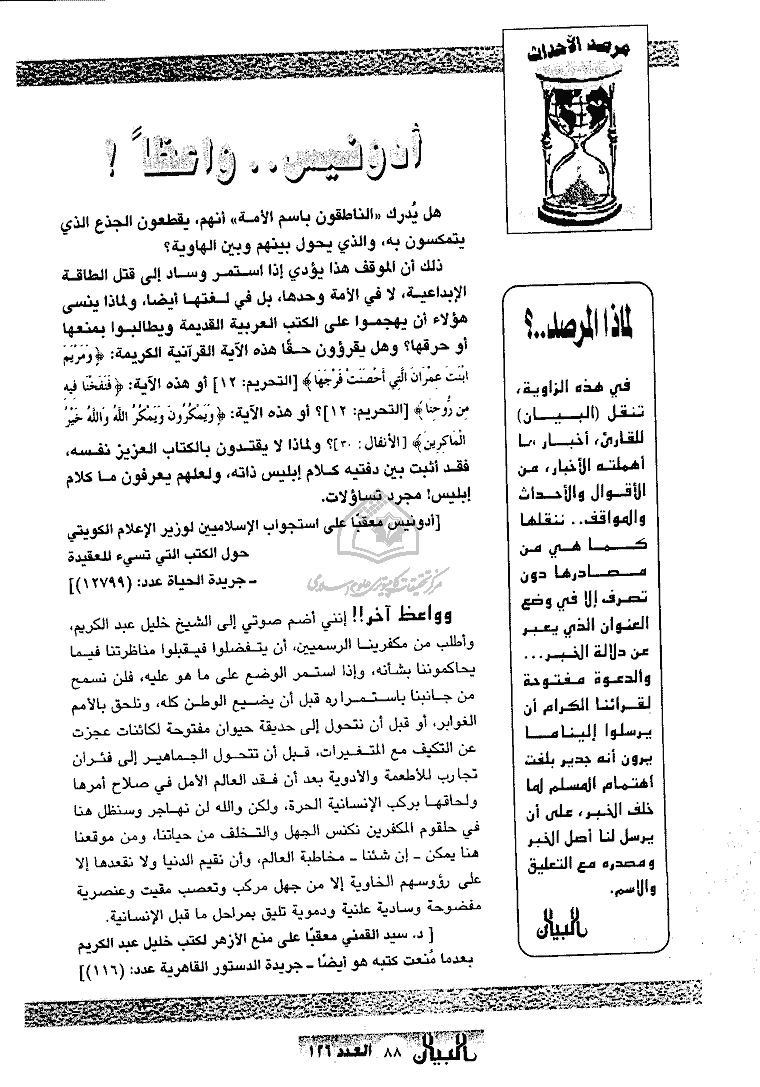 مرصد الأحداث
أدونيس.. واعظاً !
هل يُدرك «الناطقون باسم الأمة» أنهم، يقطعون الجذع الذي
يتمكسون به، والذي يحول بينهم وبين الهاوية؟
ذلك أن الموقف هذا يؤدي إذا استمر وساد إلى قتل الطاقة
الإبداعية، لا في الأمة وحدها، بل في لغتها أيضا، ولماذا ينسى
هؤلاء أن يهجموا على الكتب العربية القديمة ويطالبوا بمنعها
أو حرقها؟ وهل يقرؤون حقًا هذه الآية القرآنية الكريمة: ﴿وَمَرْيَمَ
ابْنَتَ عِمْرَانَ الَّتِي أَحْصَنَتْ فَرْجَهَا﴾ [التحريم: ١٢] أو هذه الآية: ﴿فَنَفَخْنَا فِيهِ
مِن رُّوحِنَا﴾ [التحريم: ١٢]؟ أو هذه الآية: ﴿وَيَمْكُرُونَ وَيَمْكُرُ اللَّهُ وَاللَّهُ خَيْرُ
الْمَاكِرِينَ﴾ [الأنفال: ٣٠]؟ ولماذا لا يقتدون بالكتاب العزيز نفسه،
فقد أثبت بين دفتيه كلام إبليس ذاته، ولعلهم يعرفون ما كلام
إبليس! مجرد تساؤلات.
[أدونيس معقبًا على استجواب الإسلاميين لوزير الإعلام الكويتي
حول الكتب التي تسيء للعقيدة
ـ جريدة الحياة عدد: (١٢٧٩٩)]
وواعظ آخر!! إنني أضم صوتي إلى الشيخ خليل عبد الكريم،
وأطلب من مكفرينا الرسميين، أن يتفضلوا فيقبلوا مناظرتنا فيما
يحاكموننا بشأنه، وإذا استمر الوضع على ما هو عليه، فلن نسمح
من جانبنا باستمراره قبل أن يضيع الوطن كله، ونلحق بالأمم
الغوابر، أو قبل أن نتحول إلى حديقة حيوان مفتوحة لكائنات عجزت
عن التكيف مع المتغيرات، قبل أن تتحول الجماهير إلى فئران
تجارب للأطعمة والأدوية بعد أن فقد العالم الأمل في صلاح أمرها
ولحاقها بركب الإنسانية الحرة، ولكن والله لن نهاجر وسنظل هنا
في حلقوم المكفرين نكنس الجهل والتخلف من حياتنا، ومن موقعنا
هنا يمكن ـ إن شئنا ـ مخاطبة العالم، وأن نقيم الدنيا ولا نقعدها إلا
على رؤوسهم الخاوية إلا من جهل مركب وتعصب مقيت وعنصرية
مفضوحة وسادية علنية ودموية تليق بمراحل ما قبل الإنسانية.
[ د. سيد القمني معقبًا على منع الأزهر لكتب خليل عبد الكريم
بعدما مُنعت كتبه هو أيضًا ـ جريدة الدستور القاهرية عدد: (١١٦)]
لماذا المرصد..؟
في هذه الزاوية،
تنقل (البـيـان)
للقارئ، أخبـار ما
أهملته الأخبار، من
الأقوال والأحداث
والمواقف.. ننقلها
كـمـا هـي مـن
مـصـادرها دون
تصرف إلا في وضع
العنوان الذي يعبر
عن دلالة الخبر...
والدعوة مفتوحة
لقرائنا الكرام أن
يرسلوا إلينا مـا
يرون أنه جدير بلفت
أهتمام المسلم لما
خلف الخبر، على أن
يرسل لنا أصل الخبر
ومصدره مع التعليق
والاسم.
البيان
مركز تحقيقات كامپيوترى علوم اسلامى
البيان ٨٨ العدد ١٢٦